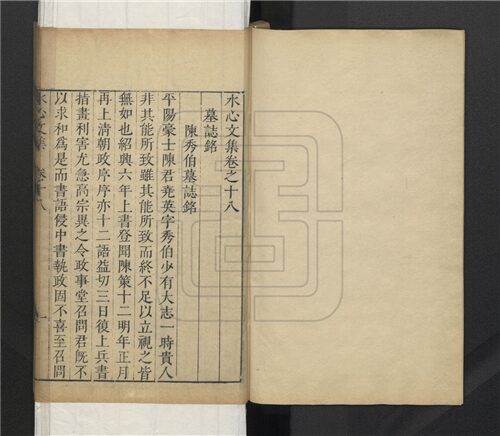 水心文集卷之十八
墓誌銘
陳秀伯墓誌銘
平陽豪士陳君堯英字秀伯少有大志一時貴人
非其能所致雖其能所致而終不足以立視之皆
無如也紹興六年上書登聞陳策十二明年正月
再上清朝政序序亦十二語益切三日復上兵書
措畫利害尤急高宗異之令政事堂召問君旣不
以求和為是而書語侵中書執政固不喜至召問
水心文集 卷十八 一